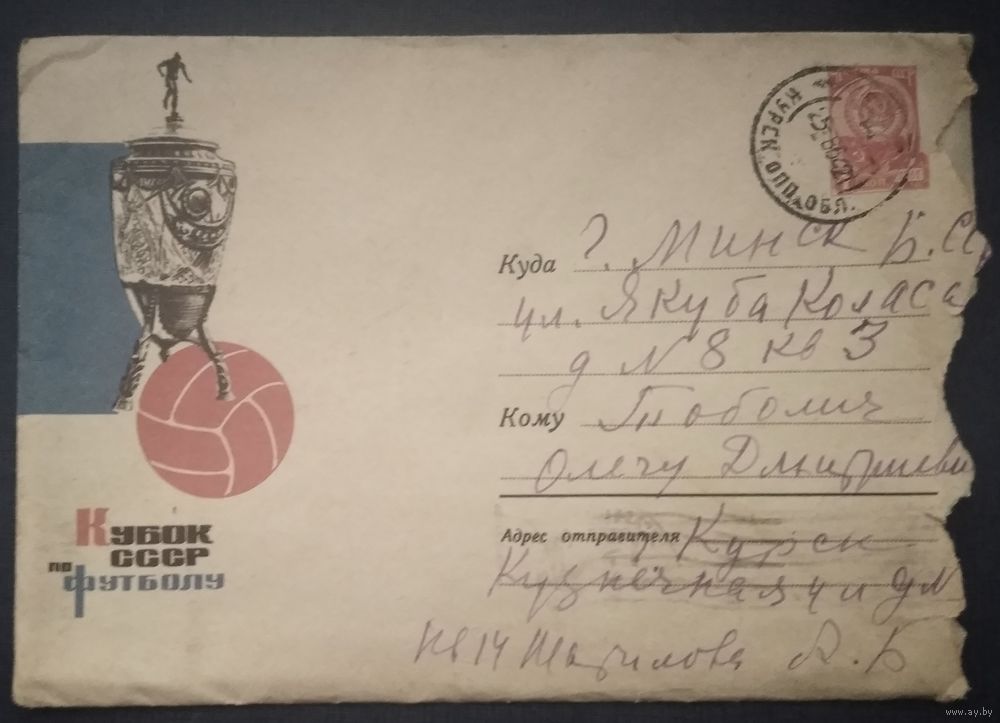 Кубок
СССР
по
футболу
КУРСК
Куда г. Минск Б.СС
ул. Якуба Коласа
д N 8 кв 3
Кому Тоболич
Олегу Дмитриеви
Адрес отправителя Курск
Кузнечная
кв 14 А.Б
www.ay.by